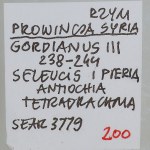 RZYM
PROWINCJA SYRIA
GORDIANUS III
238-244
SELEUCIS I PIERIA
ANTIOCHIA
TETRADRACHMA
SEAR 3779
200